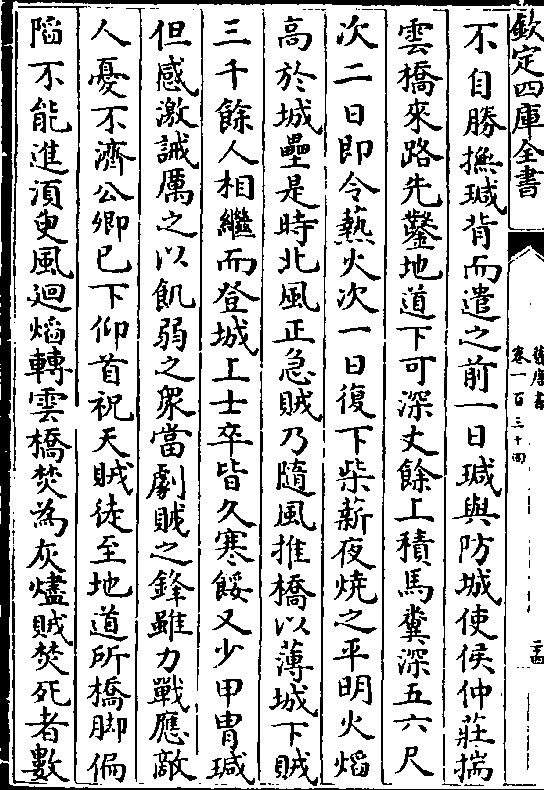 欽定四庫全書
舊唐書
卷一百三十四
不自勝撫瑊背而遣之前一日瑊與防城使侯仲莊揣
雲橋來路先鑿地道下可深丈餘上積馬糞深五六尺
次二日即令爇火次一日復下柴薪夜燒之平明火熖
高於城壘是時北風正急賊乃隨風推橋以薄城下賊
三千餘人相繼而登城上士卒皆久寒餒又少甲胄瑊
但感激誡厲之以飢弱之衆當劇賊之鋒雖力戰應敵
人憂不濟公卿已下仰首祝天賊徒至地道所橋脚偏
陷不能進須臾風迴熖轉雲橋焚為灰燼賊焚死者數